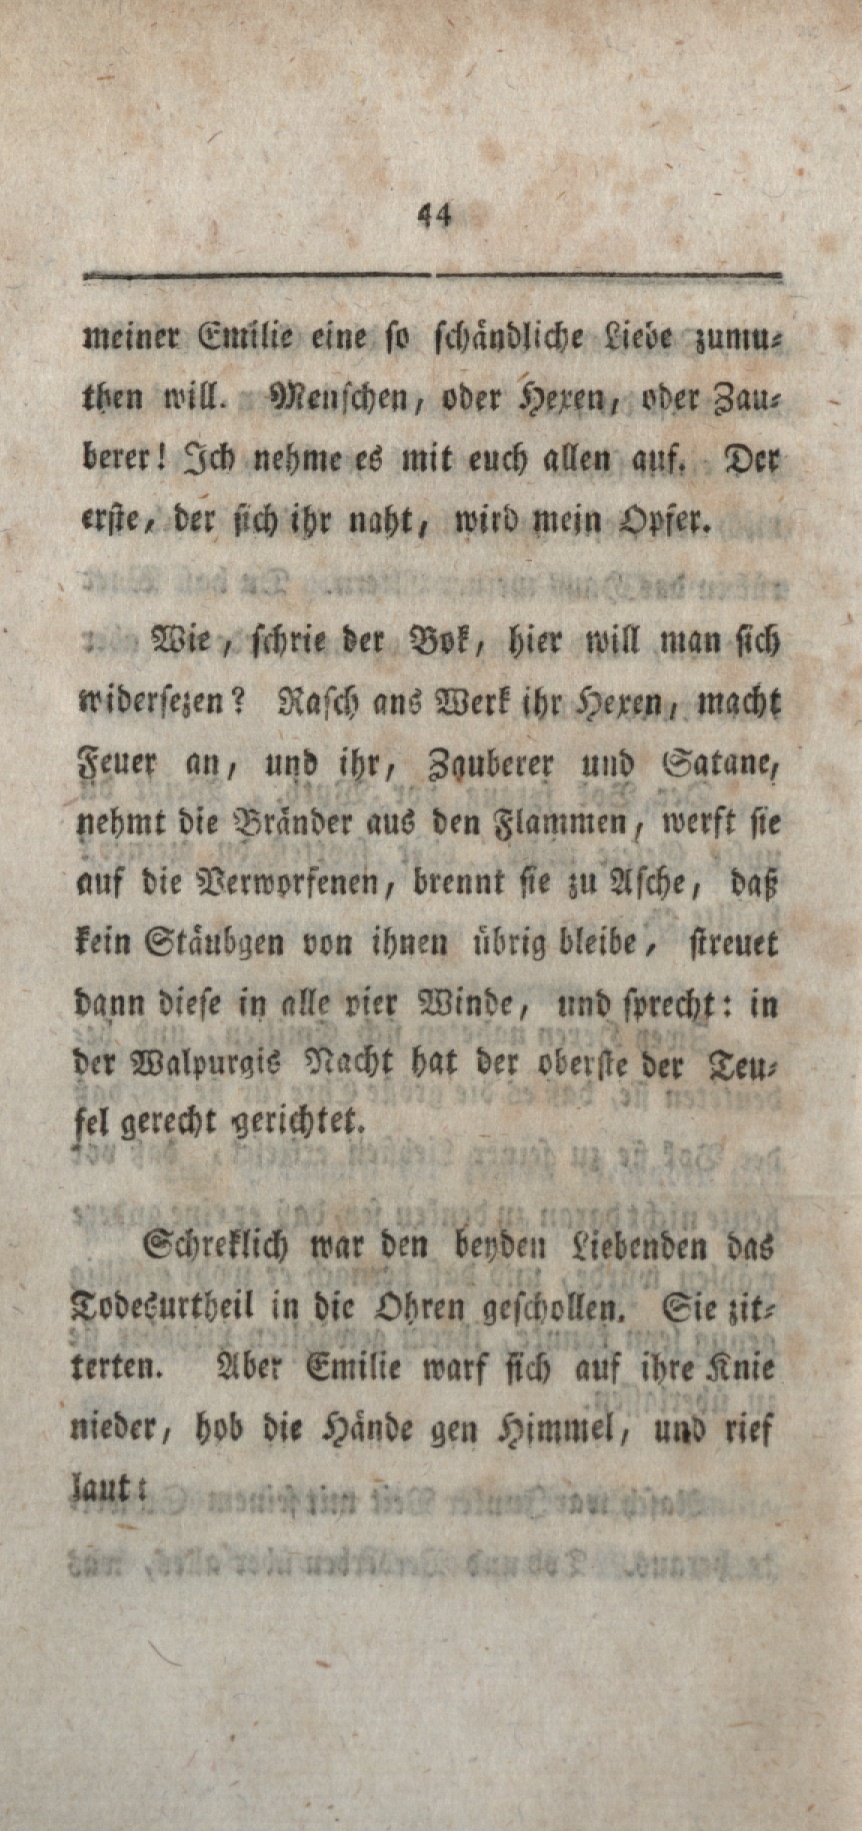 44
meiner Emilie eine so schändliche Liebe zumu⸗
then will. Menschen, oder Hexen, oder Zau⸗
berer! Ich nehme es mit euch allen auf. Der
erste, der sich ihr naht, wird mein Opfer.
Wie, schrie der Bok, hier will man sich
widersezen? Rasch ans Werk ihr Hexen, macht
Feuer an, und ihr, Zauberer und Satane,
nehmt die Bränder aus den Flammen, werft sie
auf die Verworfenen, brennt sie zu Asche, daß
kein Stäubgen von ihnen übrig bleibe, streuet
dann diese in alle vier Winde, und sprecht: in
der Walpurgis Nacht hat der oberste der Teu⸗
fel gerecht gerichtet.
Schreklich war den beyden Liebenden das
Todesurtheil in die Ohren geschollen. Sie zit⸗
terten. Aber Emilie warf sich auf ihre Knie
nieder, hob die Hände gen Himmel, und rief
laut: